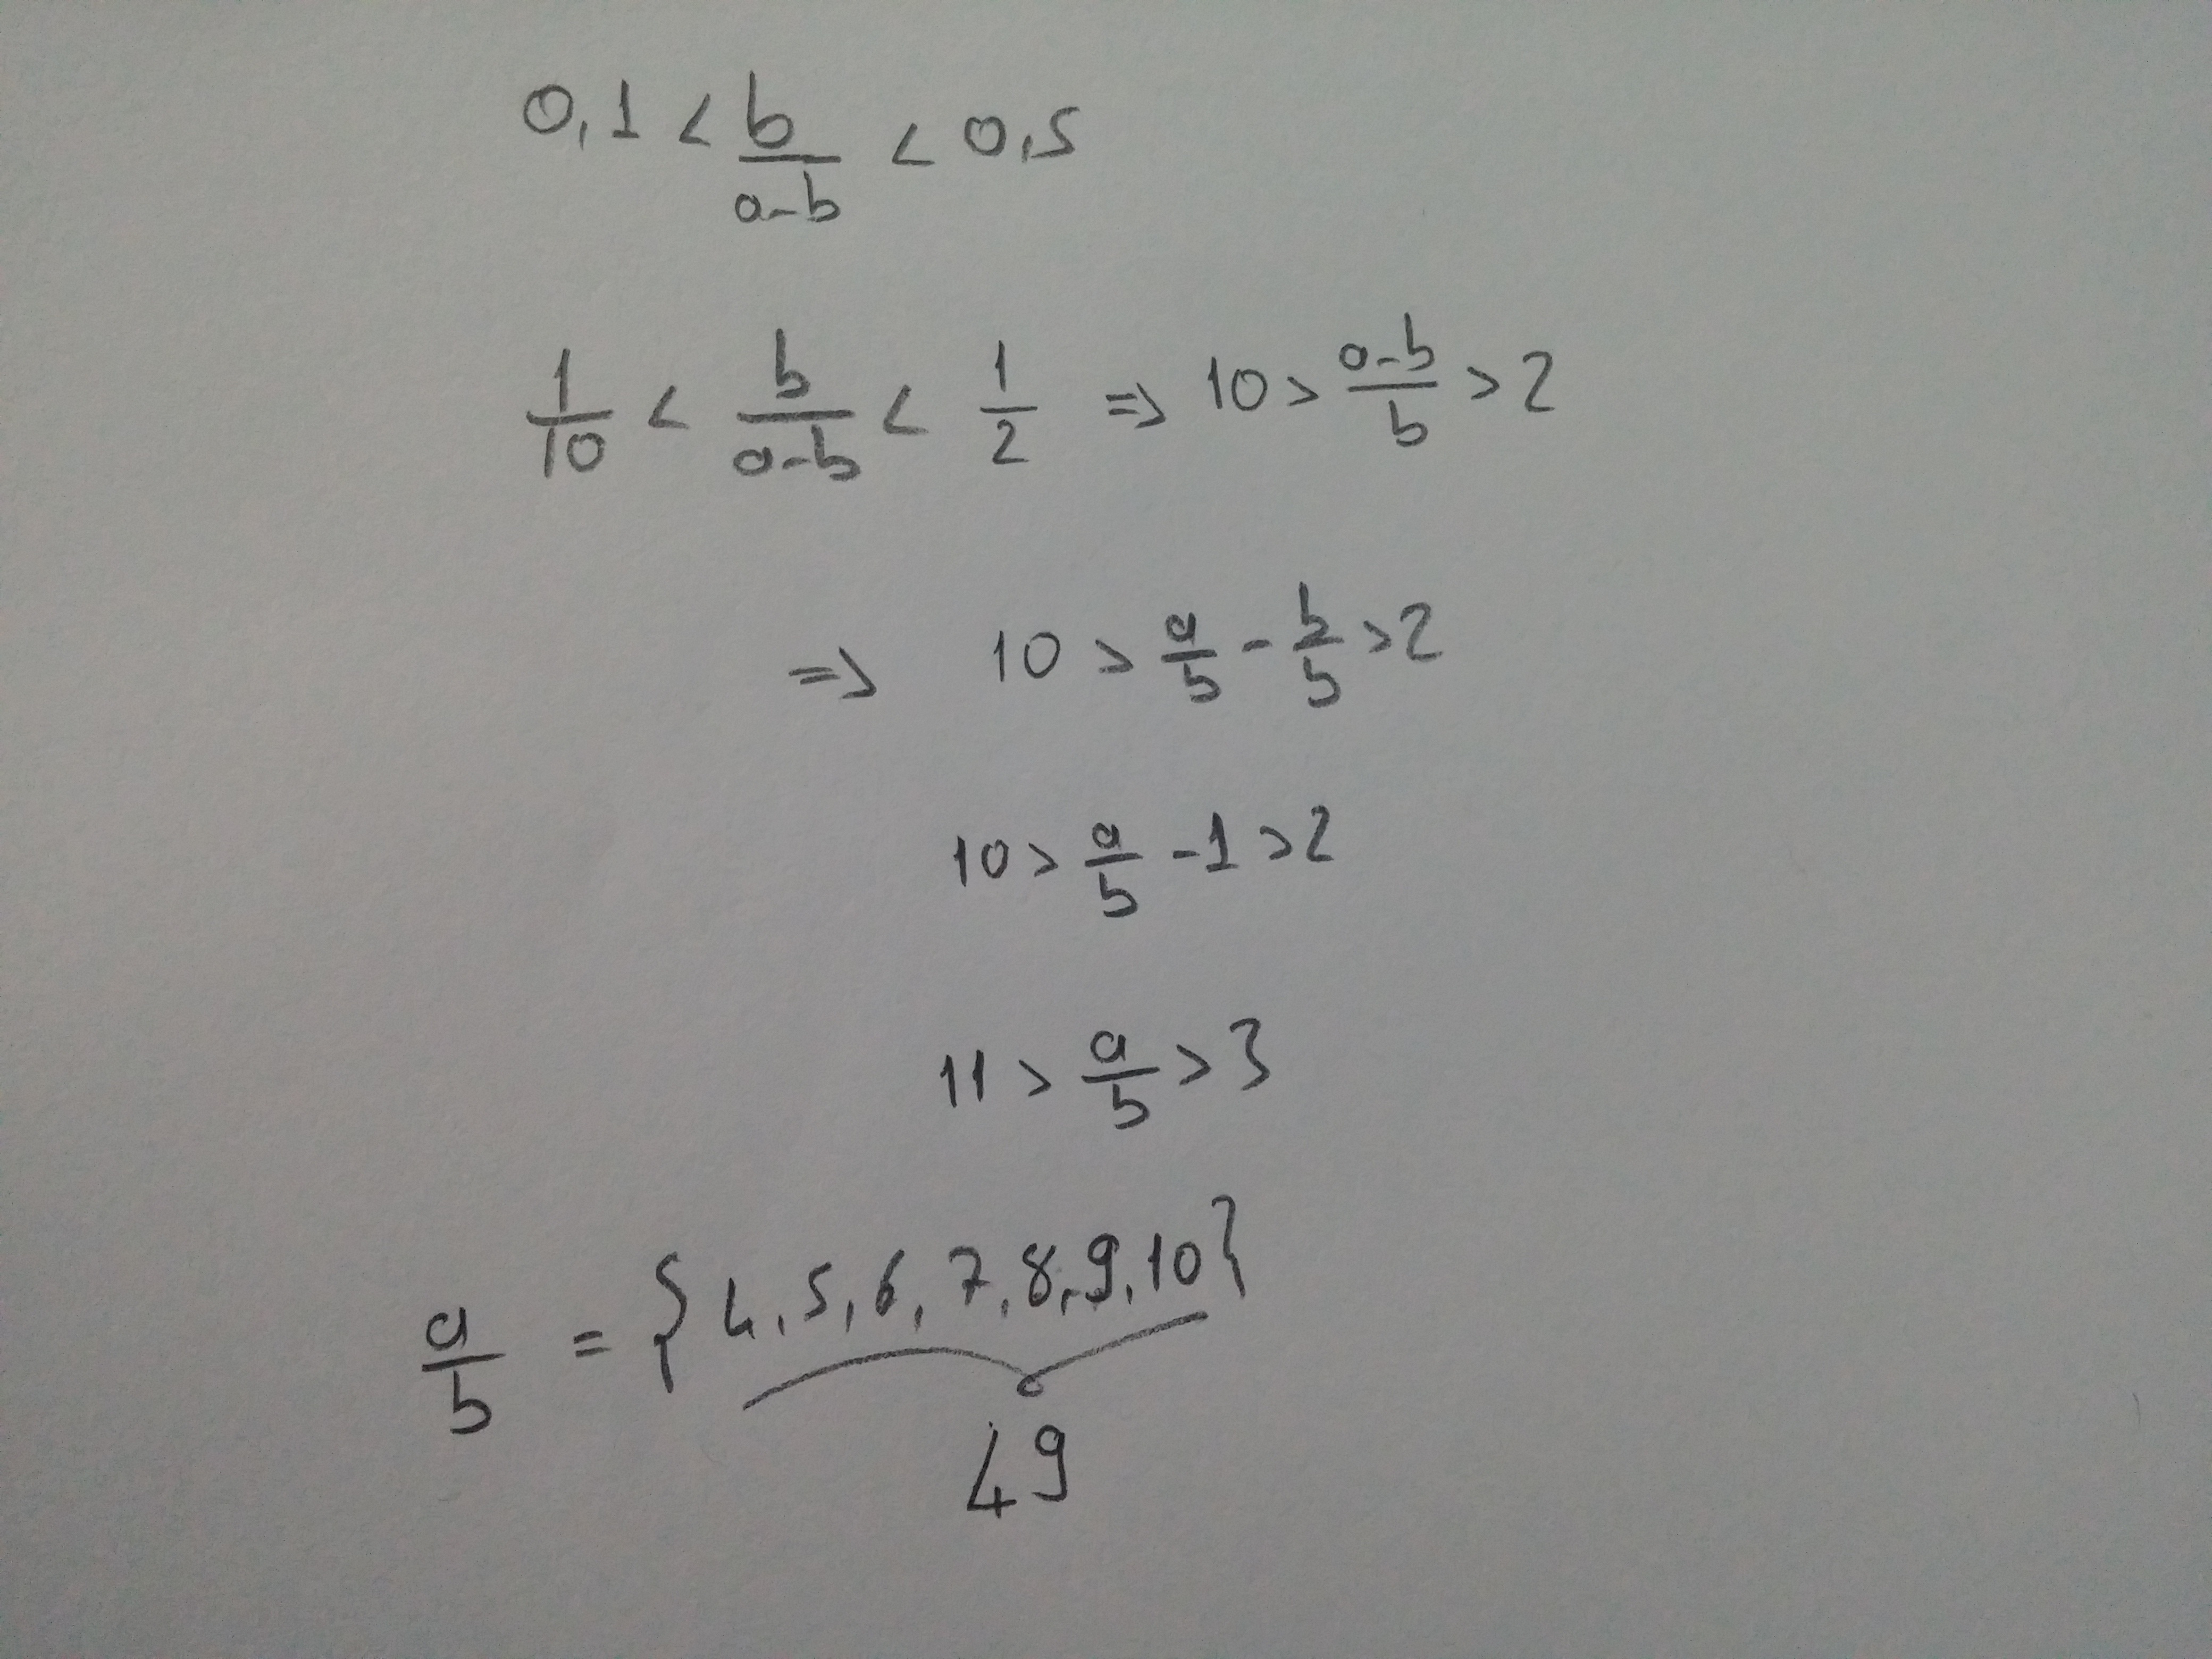 0,1 < b/(a-b) < 0,5
1/10 < b/(a-b) < 1/2 => 10 > (a-b)/b > 2
=> 10 > a/b - b/b > 2
10 > a/b - 1 > 2
11 > a/b > 3
a/b = {4,5,6,7,8,9,10}
49